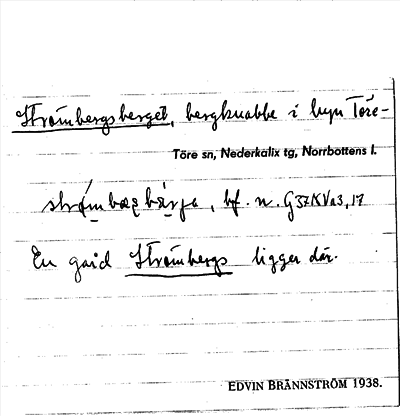 Strömbergsberget, bergknabbe i byn Töre-
Töre sn, Nederkalix tg, Norrbottens l.
bf. n. G37KVa3,17
En gård Strömbergs ligger där.
EDVIN BRÄNNSTRÖM 1938.